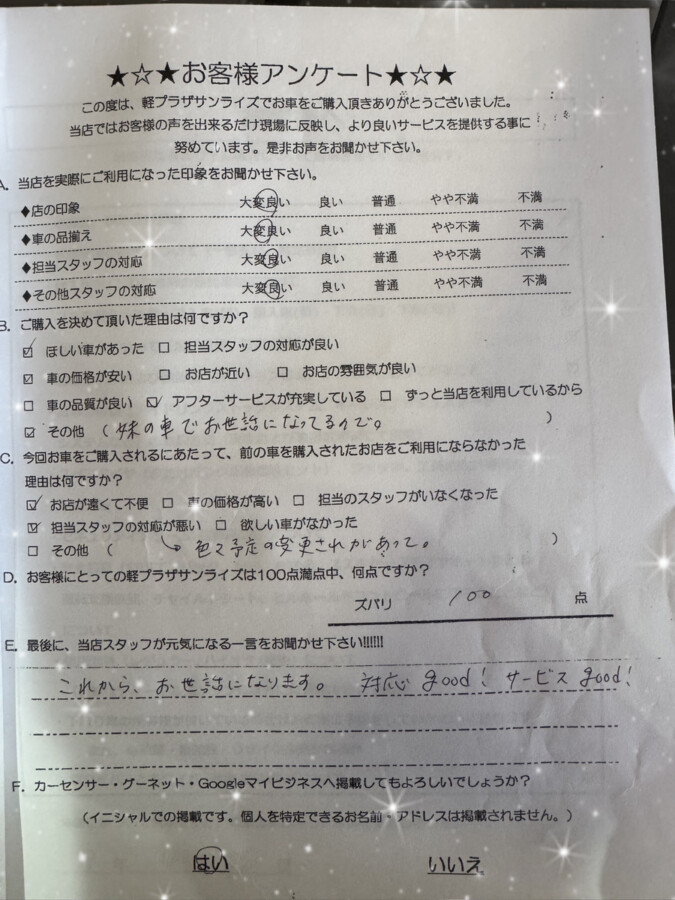 ★☆★お客様アンケート★☆★
この度は、軽プラザサンライズでお車をご購入頂きありがとうございました。
当店ではお客様の声を出来るだけ現場に反映し、より良いサービスを提供する事に
努めています。是非お声をお聞かせ下さい。
A. 当店を実際にご利用になった印象をお聞かせ下さい。
◆店の印象 大変良い 良い 普通 やや不満 不満
◆車の品揃え 大変良い 良い 普通 やや不満 不満
◆担当スタッフの対応 大変良い 良い 普通 やや不満 不満
◆その他スタッフの対応 大変良い 良い 普通 やや不満 不満
B. ご購入を決めて頂いた理由は何ですか？
☑ ほしい車があった □ 担当スタッフの対応が良い
☑ 車の価格が安い □ お店が近い □ お店の雰囲気が良い
□ 車の品質が良い ☑ アフターサービスが充実している □ ずっと当店を利用しているから
☑ その他 (妹の車でお世話になってるので。)
C. 今回お車をご購入されるにあたって、前の車を購入されたお店をご利用にならなかった
理由は何ですか？
☑ お店が遠くて不便 □ 車の価格が高い □ 担当のスタッフがいなくなった
☑ 担当スタッフの対応が悪い □ 欲しい車がなかった
□ その他 (→色々予定の変更されがあって。)
D. お客様にとっての軽プラザサンライズは100点満点中、何点ですか？
ズバリ 100 点
E. 最後に、当店スタッフが元気になる一言をお聞かせ下さい!!!!!!
これから、お世話になります。 対応 good! サービス good!
F. カーセンサー・グーネット・Googleマイビジネスへ掲載してもよろしいでしょうか？
(イニシャルでの掲載です。個人を特定できるお名前・アドレスは掲載されません。)
はい いいえ